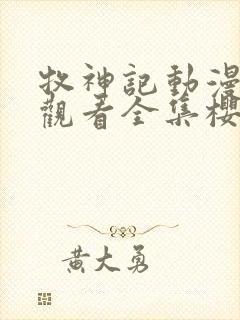 牧神記動漫
觀看全集櫻
黃大勇